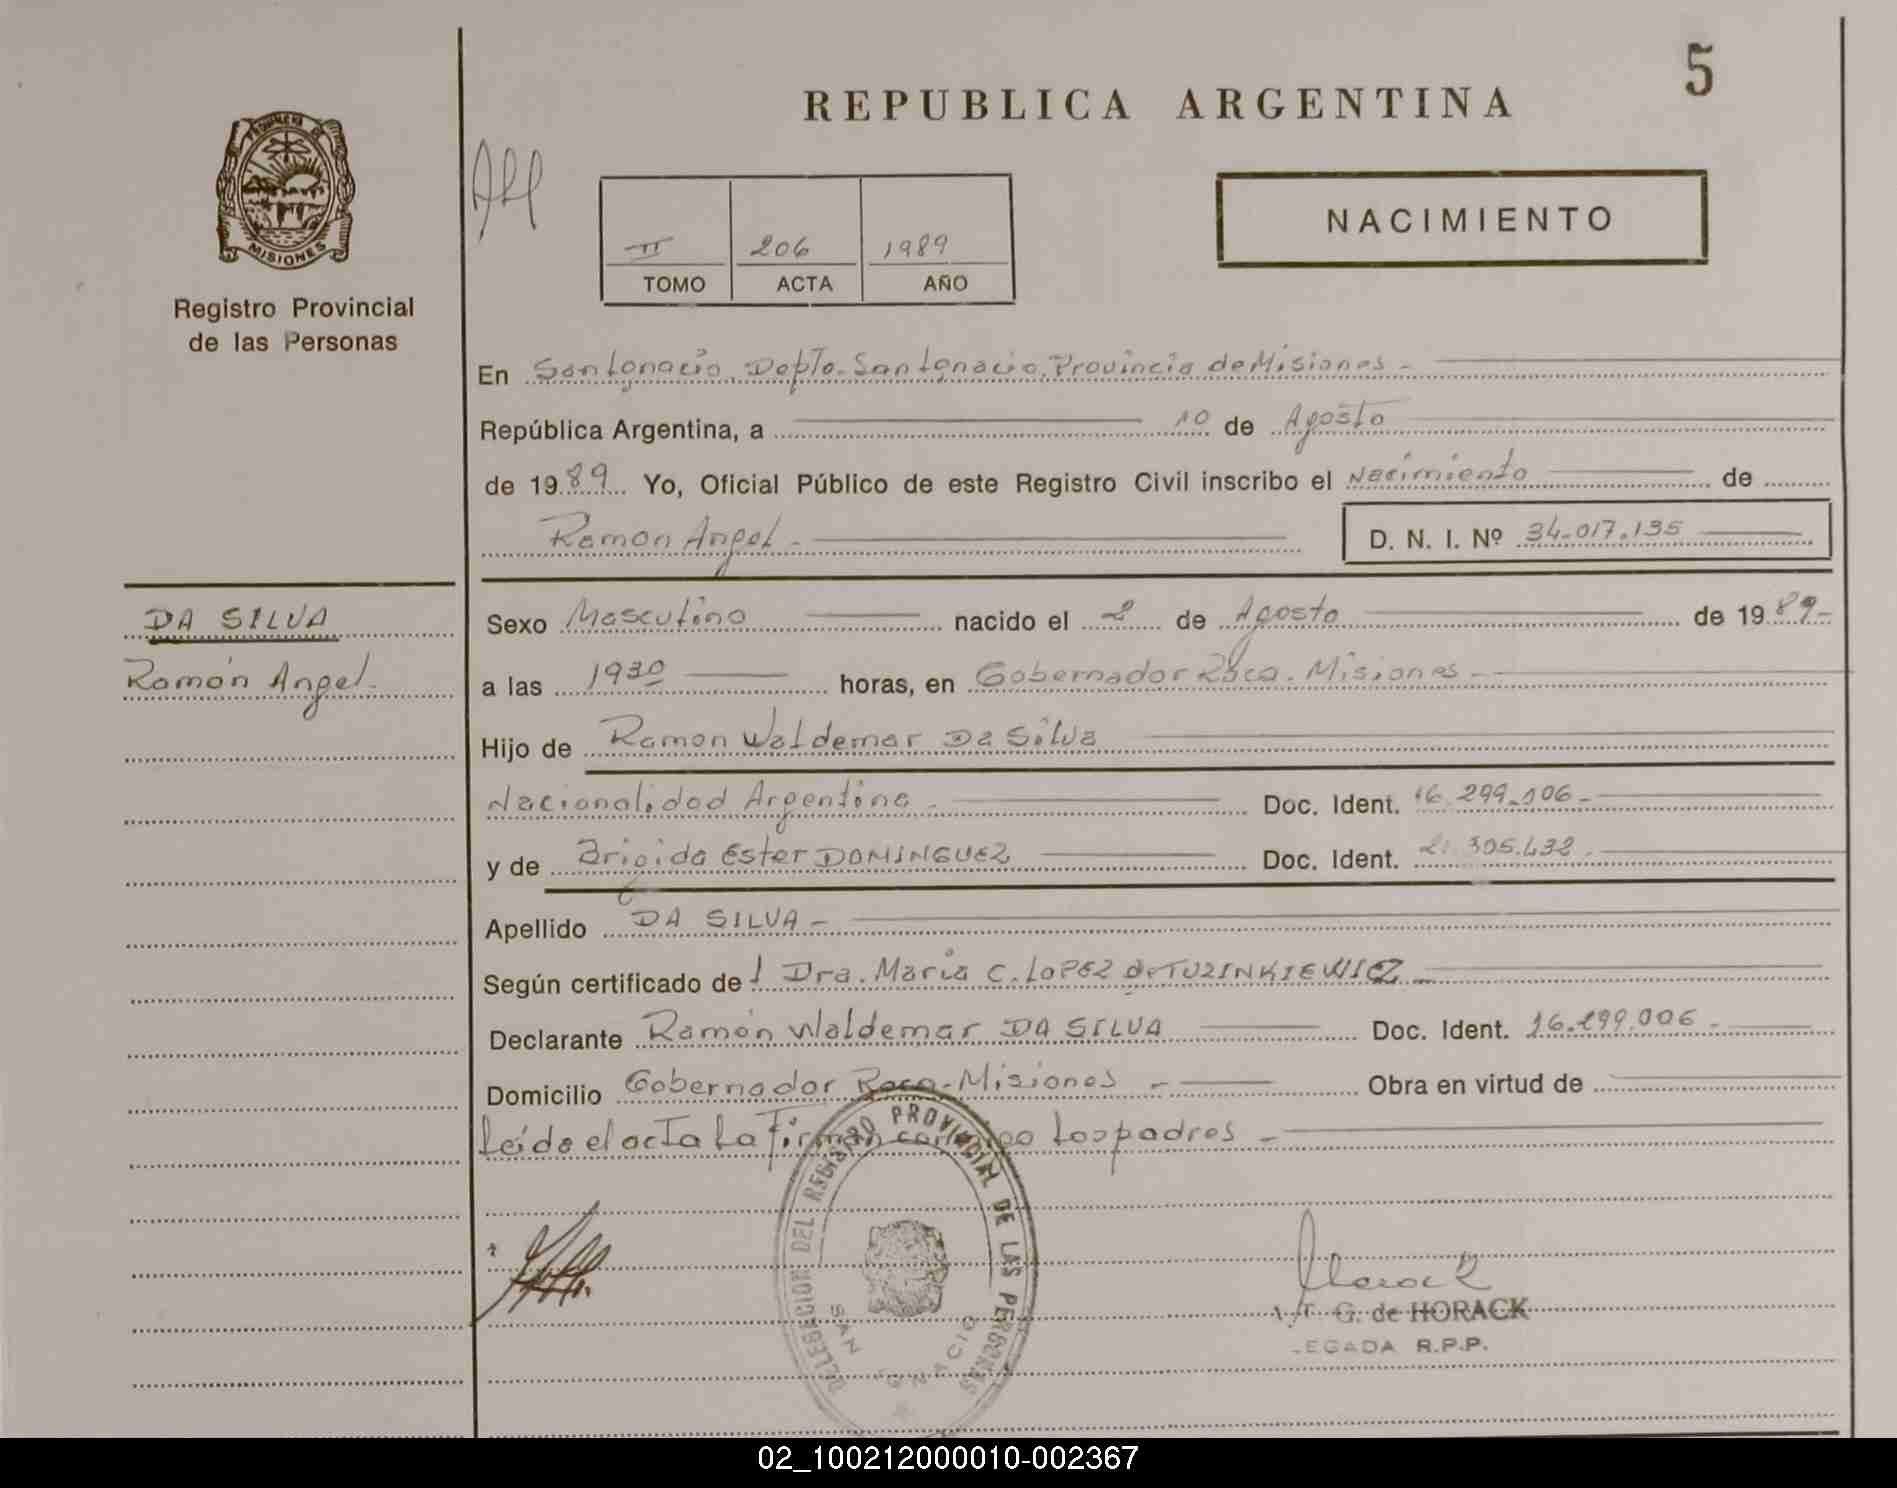 5
REPUBLICA ARGENTINA
PROVINCIA DE
MISIONES
Registro Provincial
de las Personas
NACIMIENTO
II 206 1989
TOMO ACTA AÑO
En San Ignacio, Depto. San Ignacio, Provincia de Misiones -
República Argentina, a 10 de Agosto
de 1989 Yo, Oficial Público de este Registro Civil inscribo el Nacimiento de
Ramon Angel - D. N. I. Nº 34.017.135
DA SILVA
Ramón Angel.
Sexo Masculino nacido el 2 de Agosto de 1989-
a las 1930 horas, en Gobernador Roca. Misiones -
Hijo de Ramon Waldemar Da Silva
Nacionalidad Argentina - Doc. Ident. 16.299.106 -
y de Brigida Ester DOMINGUEZ Doc. Ident. 21.305.432 -
Apellido DA SILVA -
Según certificado de Dra. María C. LOPEZ de TUZINKIEWICZ -
Declarante Ramón Waldemar DA SILVA Doc. Ident. 16.299.006 -
Domicilio Gobernador Roca - Misiones - Obra en virtud de
Leída el acta La Firman conmigo Los padres -
DELEGACION DEL REGISTRO PROVINCIAL DE LAS PERSONAS
SAN IGNACIO
Horack
G. de HORACK
LEGADA R.P.P.
02_100212000010-002367